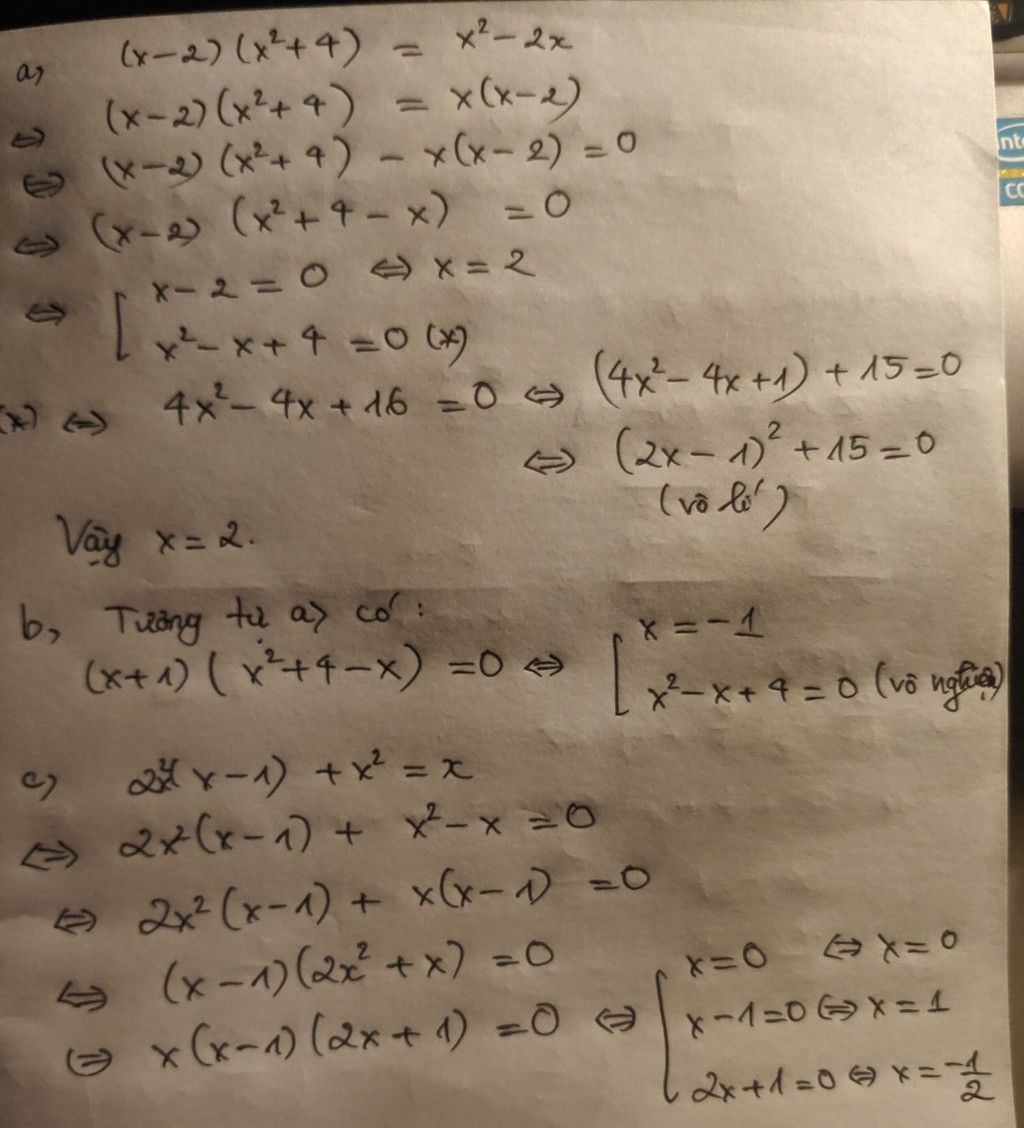 a, (x-2)(x²+4) = x²-2x
⇔ (x-2)(x²+4) = x(x-2)
⇔ (x-2)(x²+4) - x(x-2) = 0
⇔ (x-2)(x²+4-x) = 0
⇔ [ x-2 = 0 ⇔ x = 2
x²-x+4 = 0 (*)
(*) ⇔ 4x²-4x+16 = 0 ⇔ (4x²-4x+1)+15=0
⇔ (2x-1)²+15=0
(vô lí)
Vậy x=2.
b, Tương tự a) có:
(x+1)(x²+4-x) = 0 ⇔ [ x = -1
x²-x+4 = 0 (vô nghiệm)
c) (x-1) + x² = x
⇔ 2x²(x-1) + x²-x = 0
⇔ 2x²(x-1) + x(x-1) = 0
⇔ (x-1)(2x²+x) = 0
⇔ x(x-1)(2x+1) = 0 ⇔ [ x=0 ⇔ x=0
x-1=0 ⇔ x=1
2x+1=0 ⇔ x=-1/2